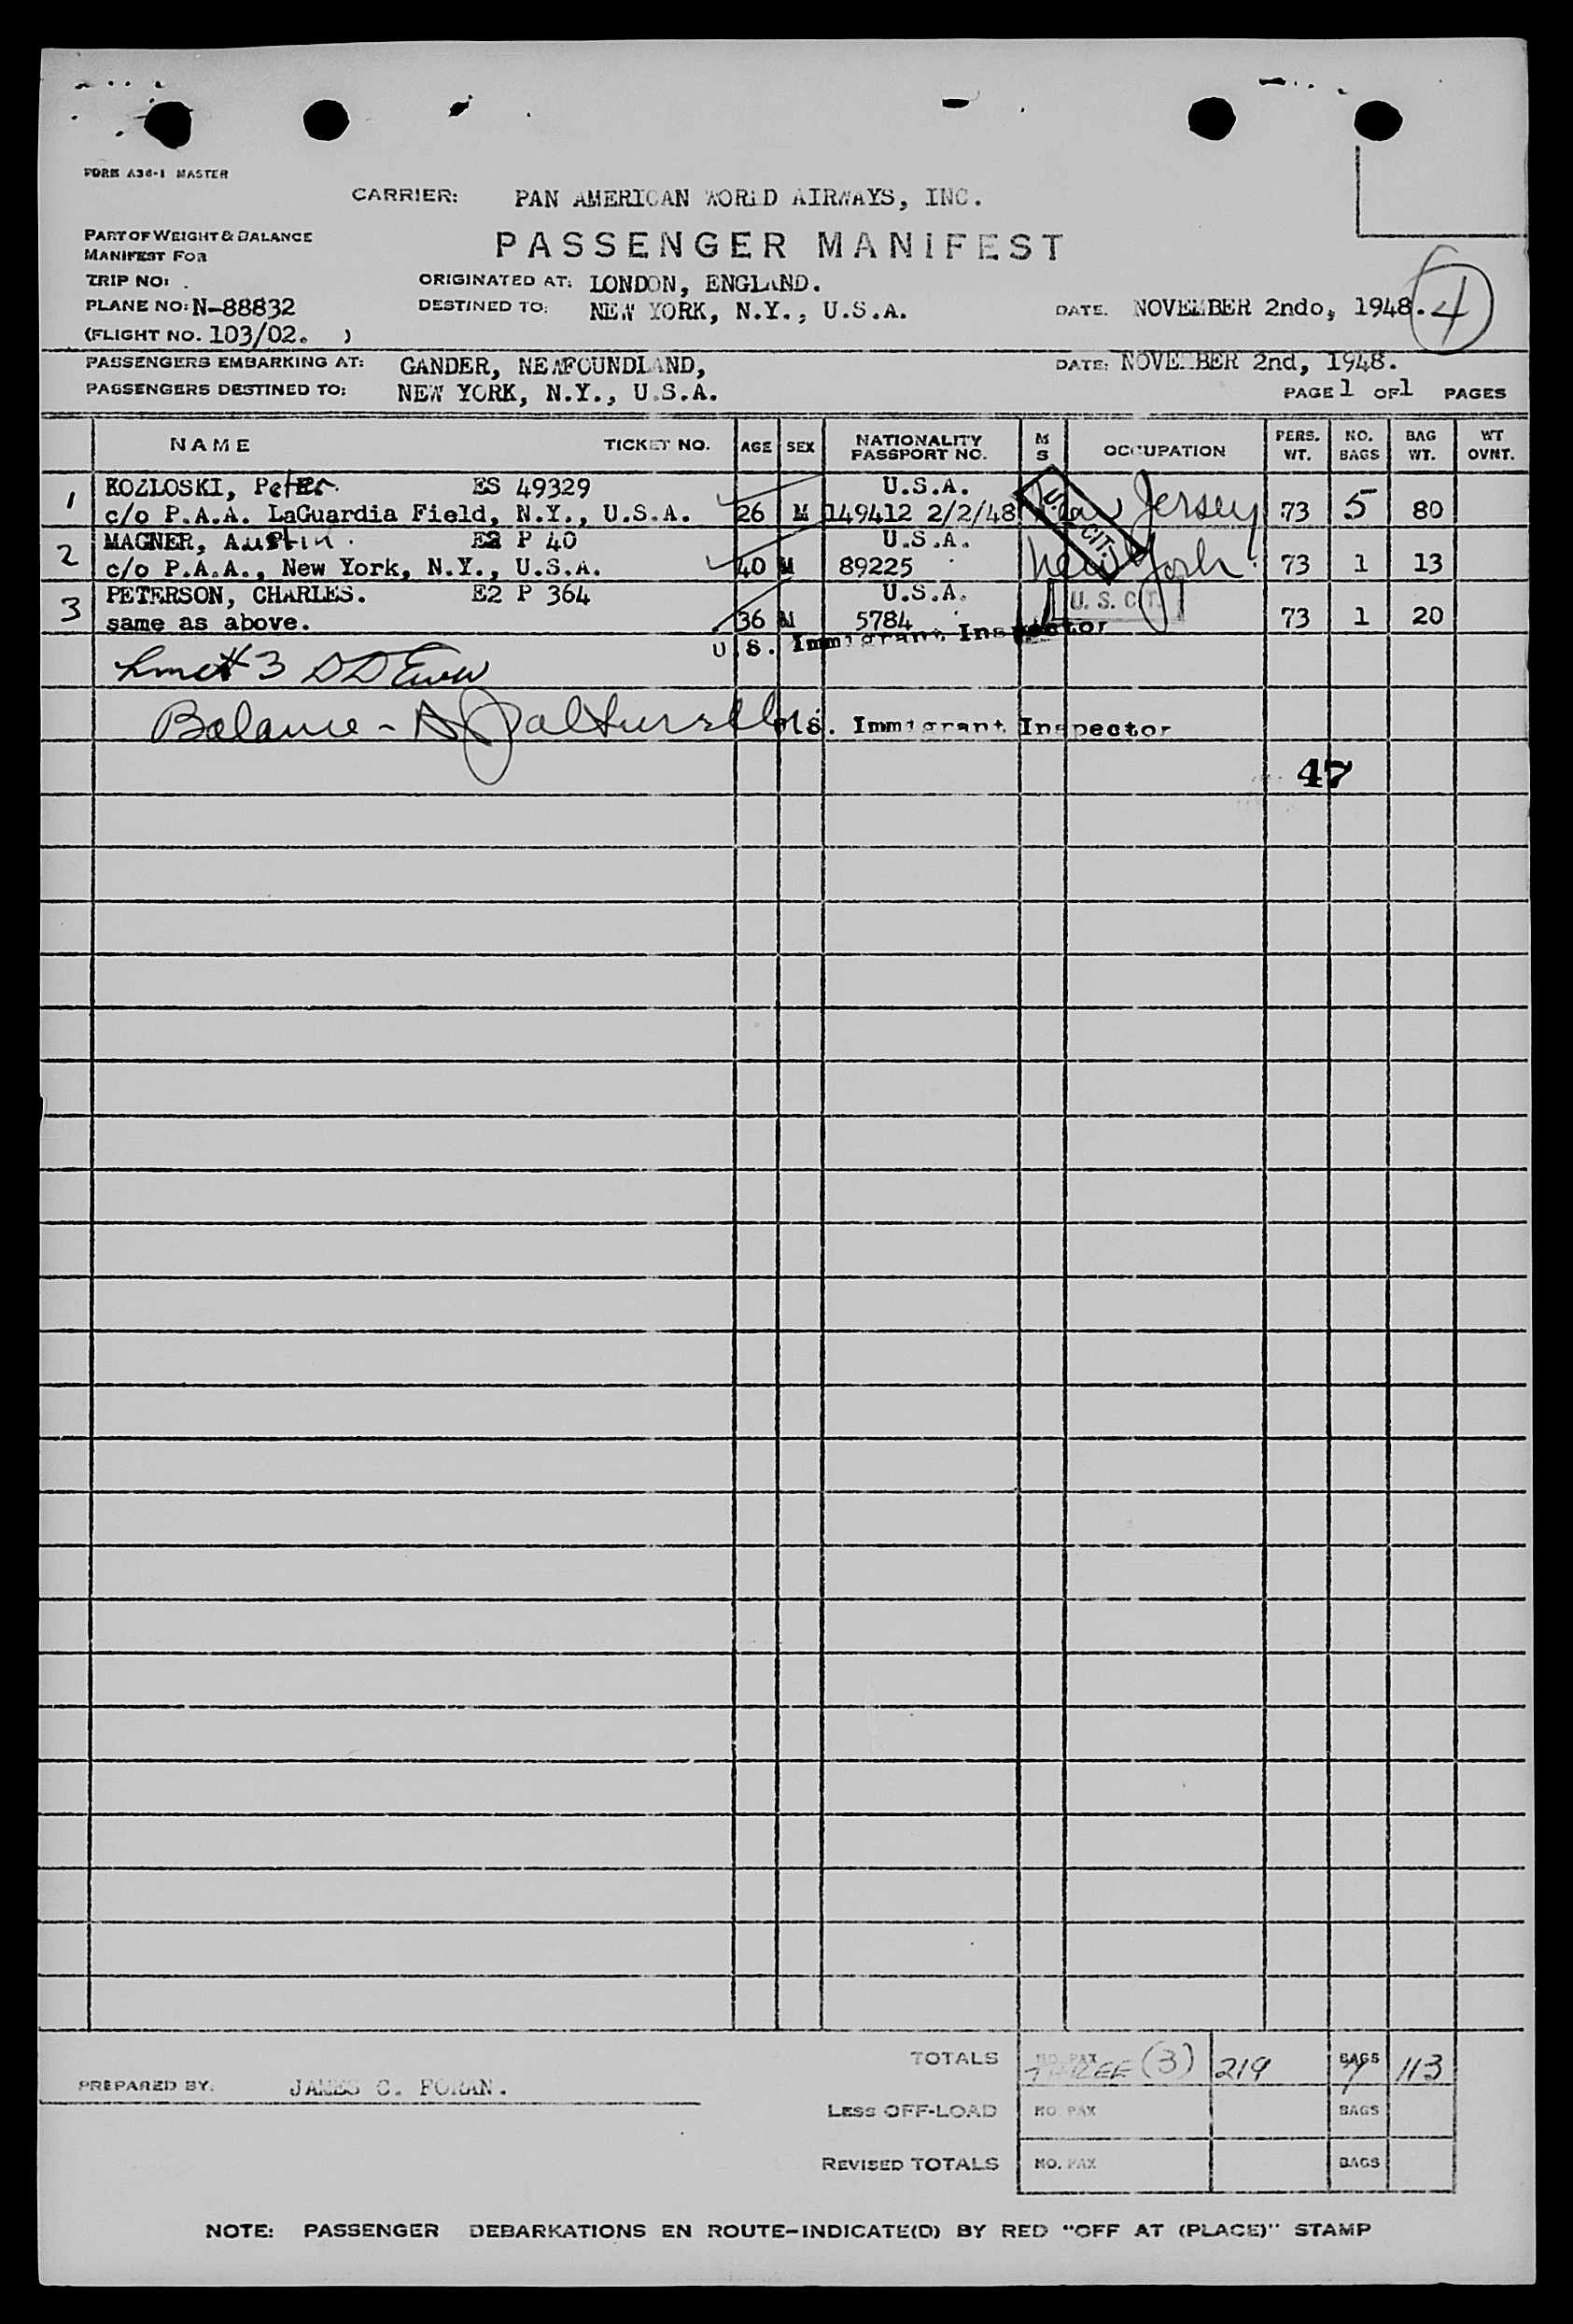 FORM A36-1 MASTER
CARRIER: PAN AMERICAN WORLD AIRWAYS, INC.
PART OF WEIGHT & BALANCE
MANIFEST FOR
PASSENGER MANIFEST
TRIP NO: .
ORIGINATED AT: LONDON, ENGLAND.
PLANE NO: N-88832
DESTINED TO: NEW YORK, N.Y., U.S.A.
DATE. NOVEMBER 2ndo, 1948.
4
(FLIGHT NO. 103/02. )
PASSENGERS EMBARKING AT: GANDER, NEWFOUNDLAND,
DATE: NOVEMBER 2nd, 1948.
PASSENGERS DESTINED TO: NEW YORK, N.Y., U.S.A.
PAGE 1 OF 1 PAGES
NAME TICKET NO. AGE SEX NATIONALITY PASSPORT NO. M S OCCUPATION PERS. WT. NO. BAGS BAG WT. WT OVNT.
1 KOZLOSKI, Peter. ES 49329 U.S.A.
c/o P.A.A. LaGuardia Field, N.Y., U.S.A. 26 M 149412 2/2/48 New Jersey 73 5 80
U.S. CIT.
2 MAGNER, Austin. E2 P 40 U.S.A.
c/o P.A.A., New York, N.Y., U.S.A. 40 M 89225 New York 73 1 13
3 PETERSON, CHARLES. E2 P 364 U.S.A.
U. S. CIT.
same as above. 36 M 5784 73 1 20
U.S. Immigrant Inspector
3
Balance -
U.S. Immigrant Inspector
47
TOTALS NO. PAX THREE (3) 219 BAGS 7 113
PREPARED BY. JAMES C. FORAN.
LESS OFF-LOAD NO. PAX BAGS
REVISED TOTALS NO. PAX BAGS
NOTE: PASSENGER DEBARKATIONS EN ROUTE-INDICATE(D) BY RED "OFF AT (PLACE)" STAMP